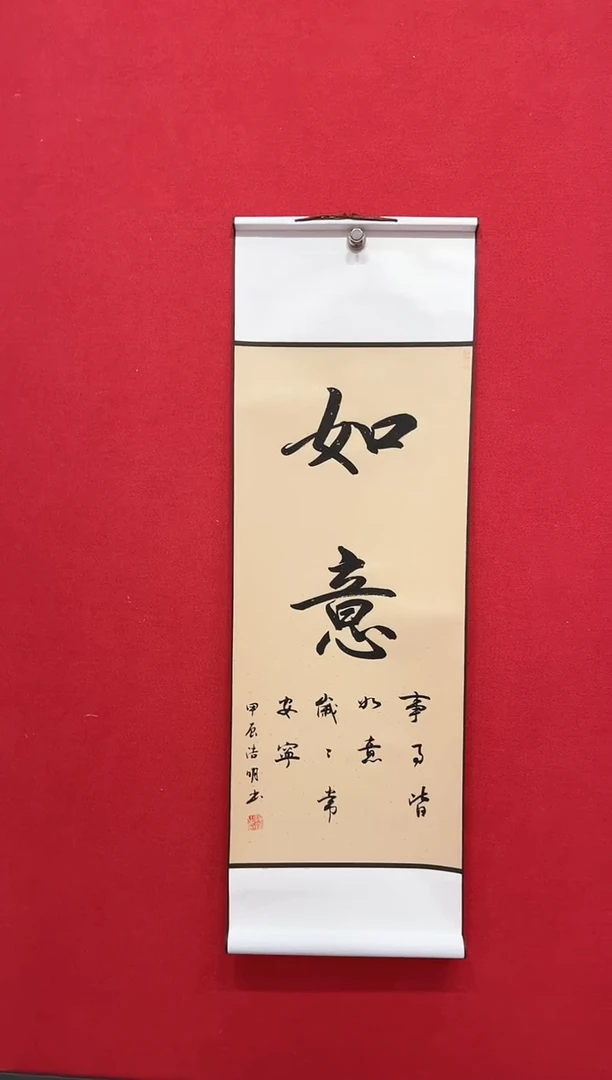 如意
事事皆
如意
歲々常
安寧
甲辰浩明书